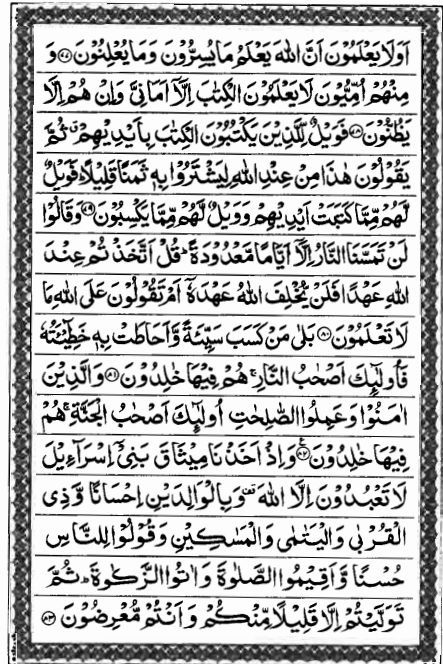 اَوَلَا يَعْلَمُوْنَ اَنَّ اللّٰهَ يَعْلَمُ مَا يُسِرُّوْنَ وَمَا يُعْلِنُوْنَ ﴿٧٧﴾ وَ
مِنْهُمْ اُمِّيُّوْنَ لَا يَعْلَمُوْنَ الْكِتٰبَ اِلَّآ اَمَانِيَّ وَاِنْ هُمْ اِلَّا
يَظُنُّوْنَ ﴿٧٨﴾ فَوَيْلٌ لِّلَّذِيْنَ يَكْتُبُوْنَ الْكِتٰبَ بِاَيْدِيْهِمْ ۗ ثُمَّ
يَقُوْلُوْنَ هٰذَا مِنْ عِنْدِ اللّٰهِ لِيَشْتَرُوْا بِهٖ ثَمَنًا قَلِيْلًا ؕ فَوَيْلٌ
لَّهُمْ مِّمَّا كَتَبَتْ اَيْدِيْهِمْ وَوَيْلٌ لَّهُمْ مِّمَّا يَكْسِبُوْنَ ﴿٧٩﴾ وَقَالُوْا
لَنْ تَمَسَّنَا النَّارُ اِلَّآ اَيَّامًا مَّعْدُوْدَةً ؕ قُلْ اَتَّخَذْتُمْ عِنْدَ
اللّٰهِ عَهْدًا فَلَنْ يُّخْلِفَ اللّٰهُ عَهْدَهٗٓ اَمْ تَقُوْلُوْنَ عَلَى اللّٰهِ مَا
لَا تَعْلَمُوْنَ ﴿٨٠﴾ بَلٰى مَنْ كَسَبَ سَيِّئَةً وَّاَحَاطَتْ بِهٖ خَطِيْٓئَتُهٗ
فَاُولٰٓئِكَ اَصْحٰبُ النَّارِ ۚ هُمْ فِيْهَا خٰلِدُوْنَ ﴿٨١﴾ وَالَّذِيْنَ
اٰمَنُوْا وَعَمِلُوا الصّٰلِحٰتِ اُولٰٓئِكَ اَصْحٰبُ الْجَنَّةِ ۚ هُمْ
فِيْهَا خٰلِدُوْنَ ﴿٨٢﴾ وَاِذْ اَخَذْنَا مِيْثَاقَ بَنِيْٓ اِسْرَآءِيْلَ
لَا تَعْبُدُوْنَ اِلَّا اللّٰهَ ۫ وَبِالْوَالِدَيْنِ اِحْسَانًا وَّذِي
الْقُرْبٰى وَالْيَتٰمٰى وَالْمَسٰكِيْنِ وَقُوْلُوْا لِلنَّاسِ
حُسْنًا وَّاَقِيْمُوا الصَّلٰوةَ وَاٰتُوا الزَّكٰوةَ ؕ ثُمَّ
تَوَلَّيْتُمْ اِلَّا قَلِيْلًا مِّنْكُمْ وَاَنْتُمْ مُّعْرِضُوْنَ ﴿٨٣﴾